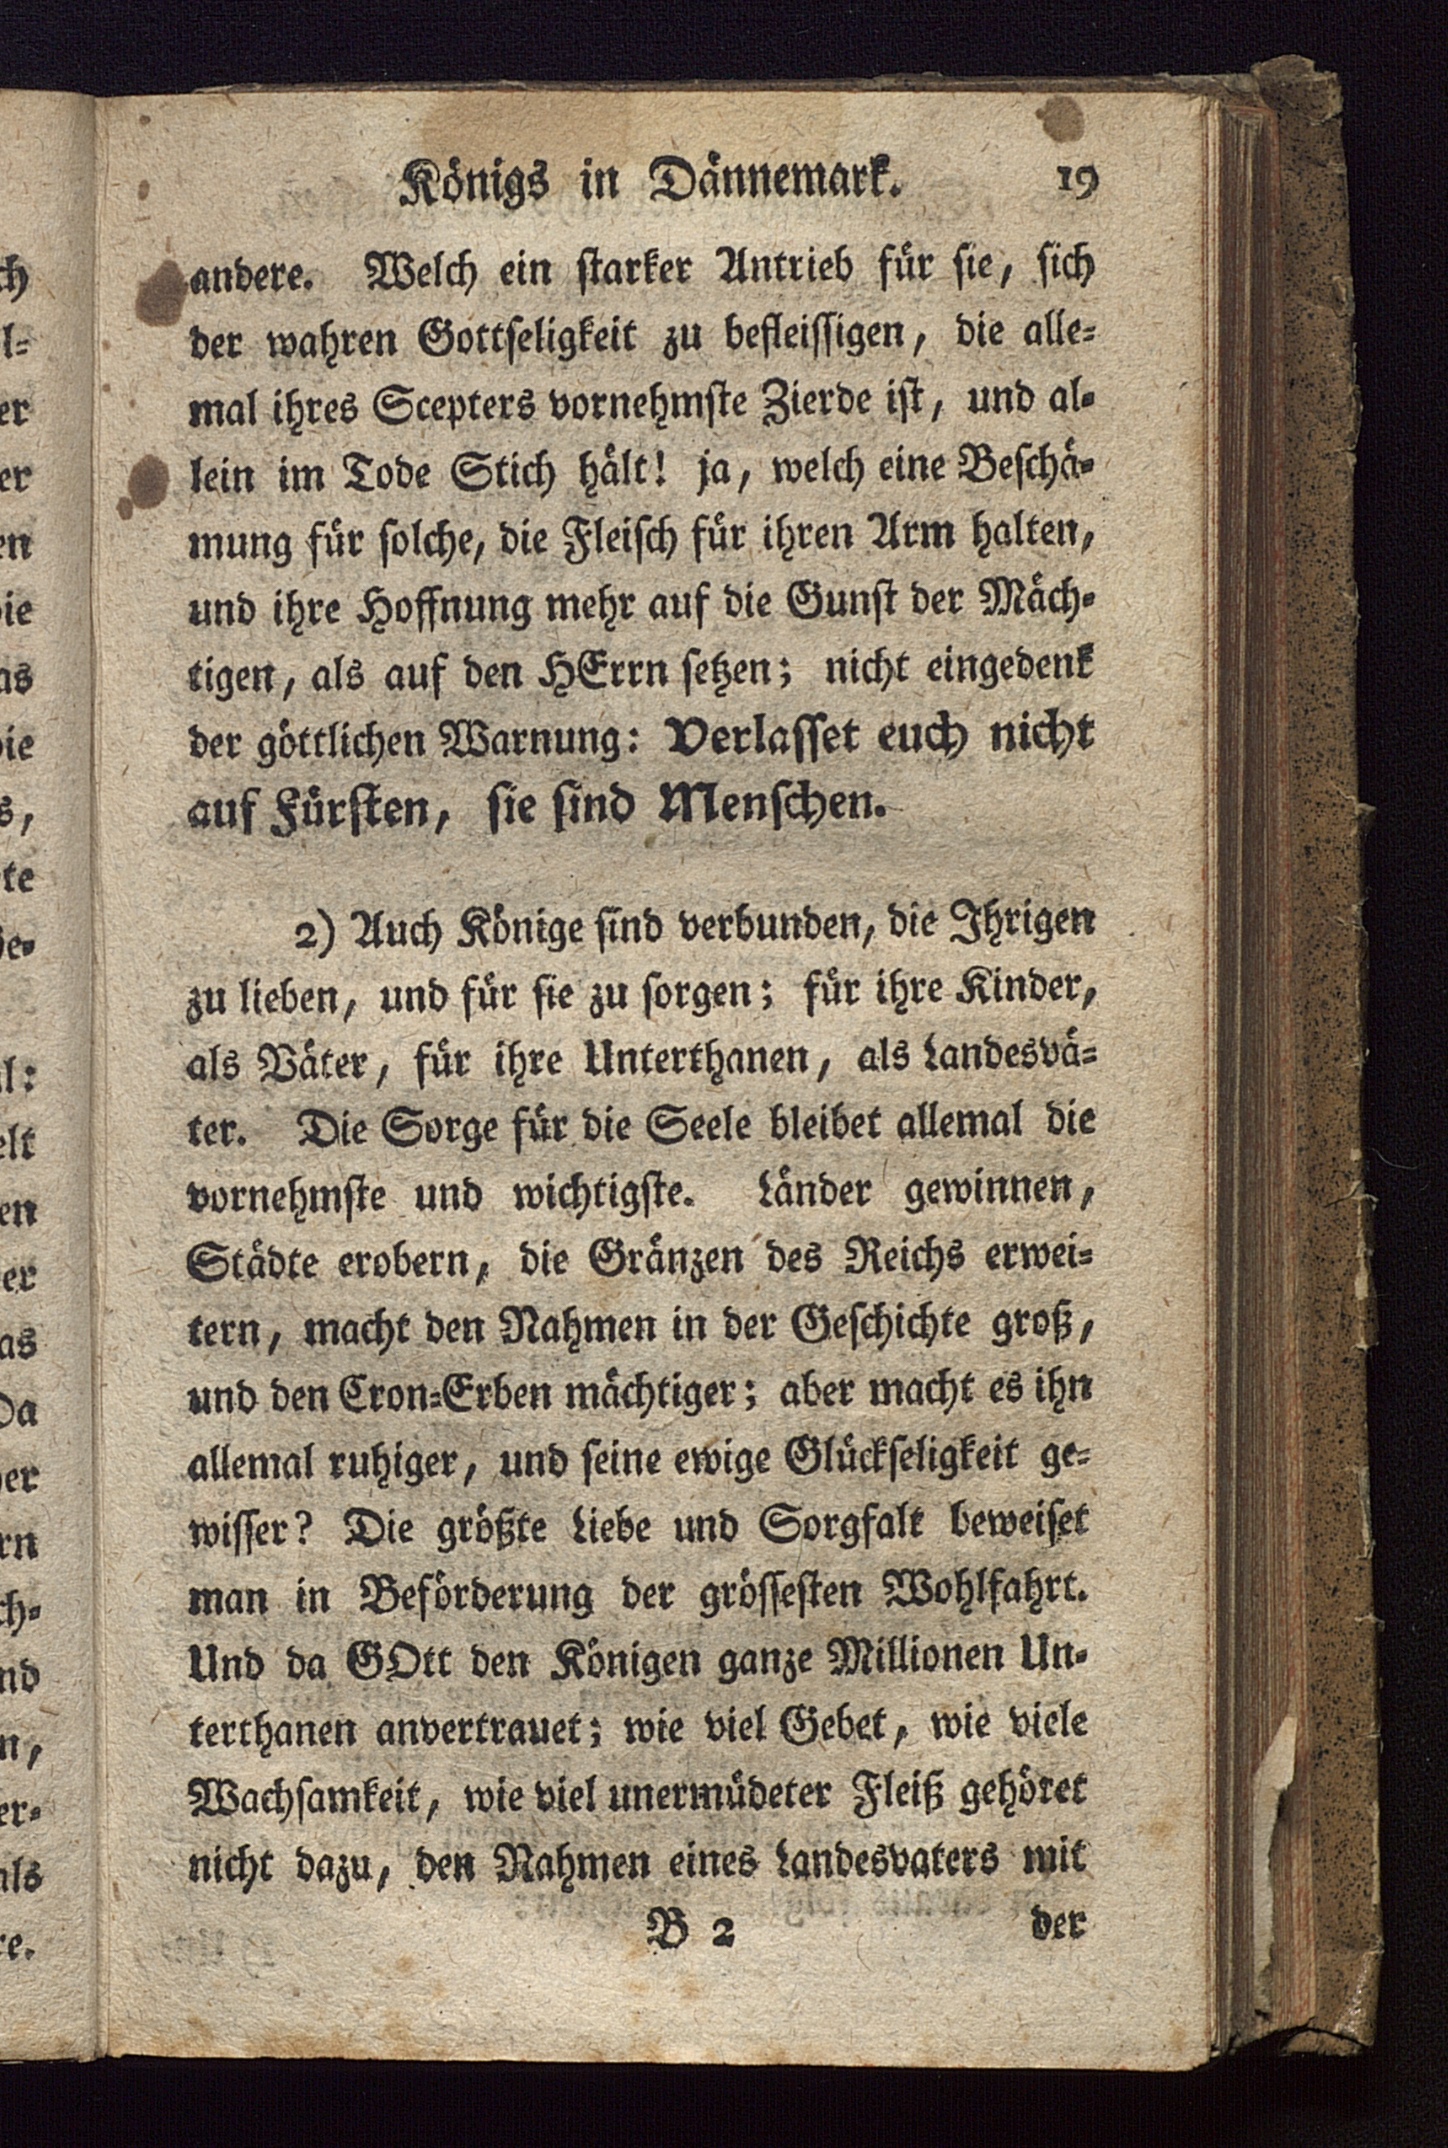 Königs in Dännemark. 19
andere. Welch ein starker Antrieb für sie, sich
der wahren Gottseligkeit zu befleissigen, die alle-
mal ihres Scepters vornehmste Zierde ist, und al-
lein im Tode Stich hält! ja, welch eine Beschä-
mung für solche, die Fleisch für ihren Arm halten,
und ihre Hoffnung mehr auf die Gunst der Mäch-
tigen, als auf den HErrn setzen; nicht eingedenk
der göttlichen Warnung: Verlasset euch nicht
auf Fürsten, sie sind Menschen.
2) Auch Könige sind verbunden, die Ihrigen
zu lieben, und für sie zu sorgen; für ihre Kinder,
als Väter, für ihre Unterthanen, als Landesvä-
ter. Die Sorge für die Seele bleibet allemal die
vornehmste und wichtigste. Länder gewinnen,
Städte erobern, die Gränzen des Reichs erwei-
tern, macht den Nahmen in der Geschichte groß,
und den Cron-Erben mächtiger; aber macht es ihn
allemal ruhiger, und seine ewige Glückseligkeit ge-
wisser? Die größte Liebe und Sorgfalt beweiset
man in Beförderung der grössesten Wohlfahrt.
Und da GOtt den Königen ganze Millionen Un-
terthanen anvertrauet; wie viel Gebet, wie viele
Wachsamkeit, wie viel unermüdeter Fleiß gehöret
nicht dazu, den Nahmen eines Landesvaters mit
B 2 der